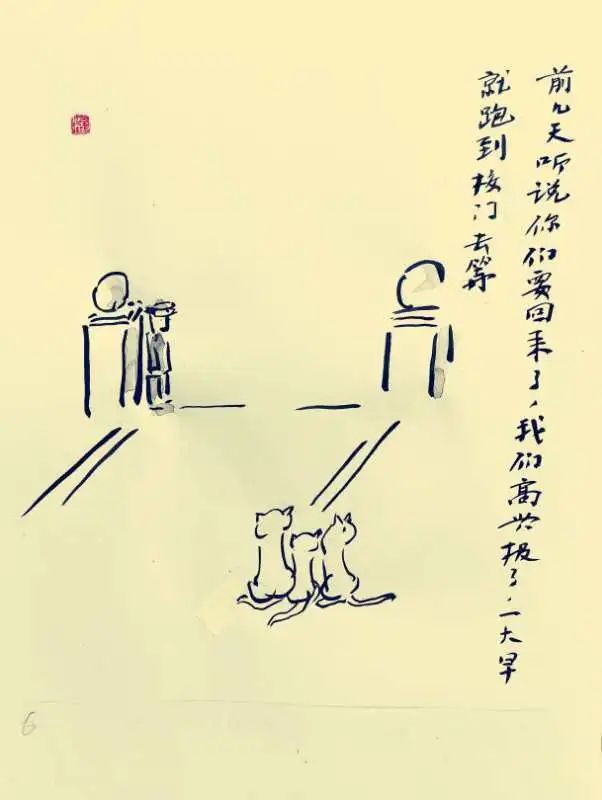 前几天听说你们要回来了，我们高兴极了，一大早
就跑到校门去等
6